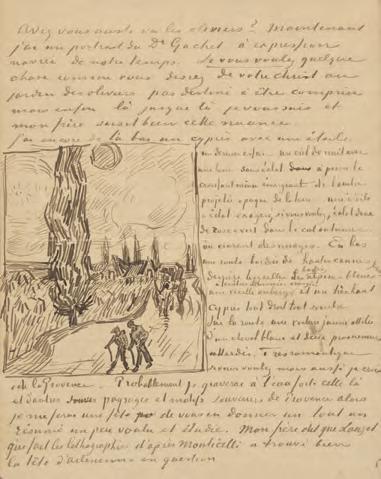 Avez vous aussi vu les oliviers? Maintenant
j'ai un portrait du Dr Gachet à expression
navrée de notre temps. Si vous voulez quelque
chose comme vous disiez de votre christ au
jardin des oliviers pas destiné à être compris
mais enfin là jusque là je vous suis et
mon frère saisit bien cette nuance
j'ai encore de là bas un cyprès avec une étoile
un dernier essai - un ciel de nuit avec
une lune sans éclat à peine le
croissant mince émergeant de l'ombre
projetée opaque de la terre - une étoile
à éclat exagéré, si vous voulez, éclat doux
de rose et vert dans le ciel outremer
où courent des nuages. En bas
une route bordée de hautes cannes
jaunes derrière lesquelles les basses alpines bleues
une vieille auberge à fenêtres illuminées orangée et un très haut
cyprès tout droit tout sombre
Sur la route une voiture jaune attelée
d'un cheval blanc et deux promeneurs
attardés. Très romantique
si vous voulez mais aussi je crois
de la Provence. Probablement je graverai à l'eau forte celle là
et d'autres paysages et motifs souvenirs de Provence alors
je me ferai une fête de vous en donner un tout un
résumé un peu voulu et étudié. Mon frère dit que Lauzet
qui fait les lithographies d'après Monticelli a trouvé bien
la tête d'arlésienne en question